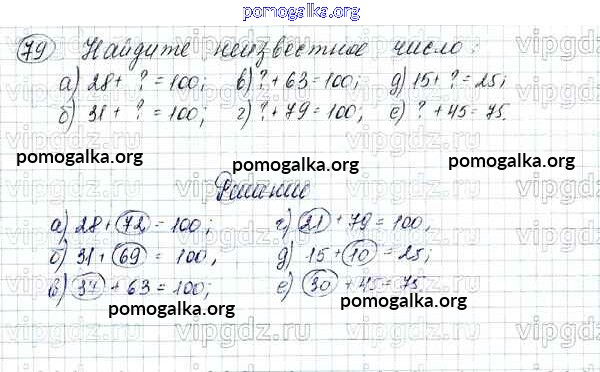 pomogalka.org
79 Найдите неизвестное число:
а) 28 + ? = 100; в) ? + 63 = 100; д) 15 + ? = 25;
б) 31 + ? = 100; г) ? + 79 = 100; е) ? + 45 = 75.
pomogalka.org pomogalka.org pomogalka.org
Решение
а) 28 + 72 = 100; г) 21 + 79 = 100,
б) 31 + 69 = 100, д) 15 + 10 = 25;
в) 37 + 63 = 100; е) 30 + 45 = 75.
pomogalka.org pomogalka.org
vipgdz.ru vipgdz.ru vipgdz.ru